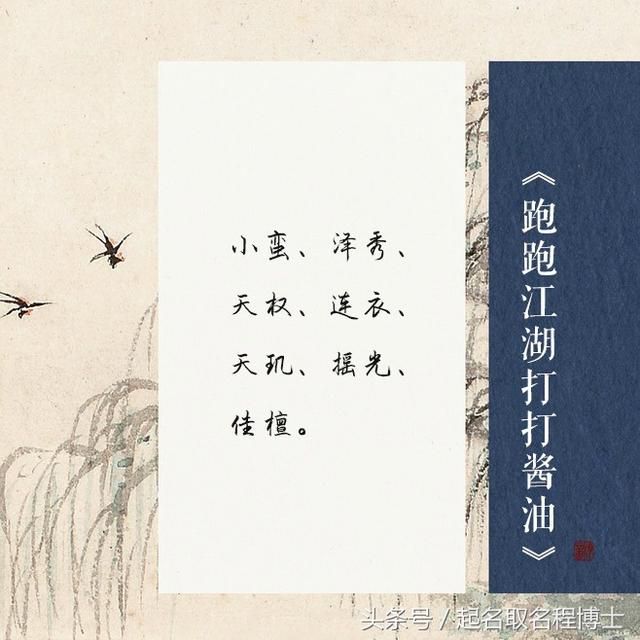 《跑跑江湖打打酱油》
小蛮、泽秀、
天权、连衣、
天玑、摇光、
佳檀。
头条号/起名取名程博士